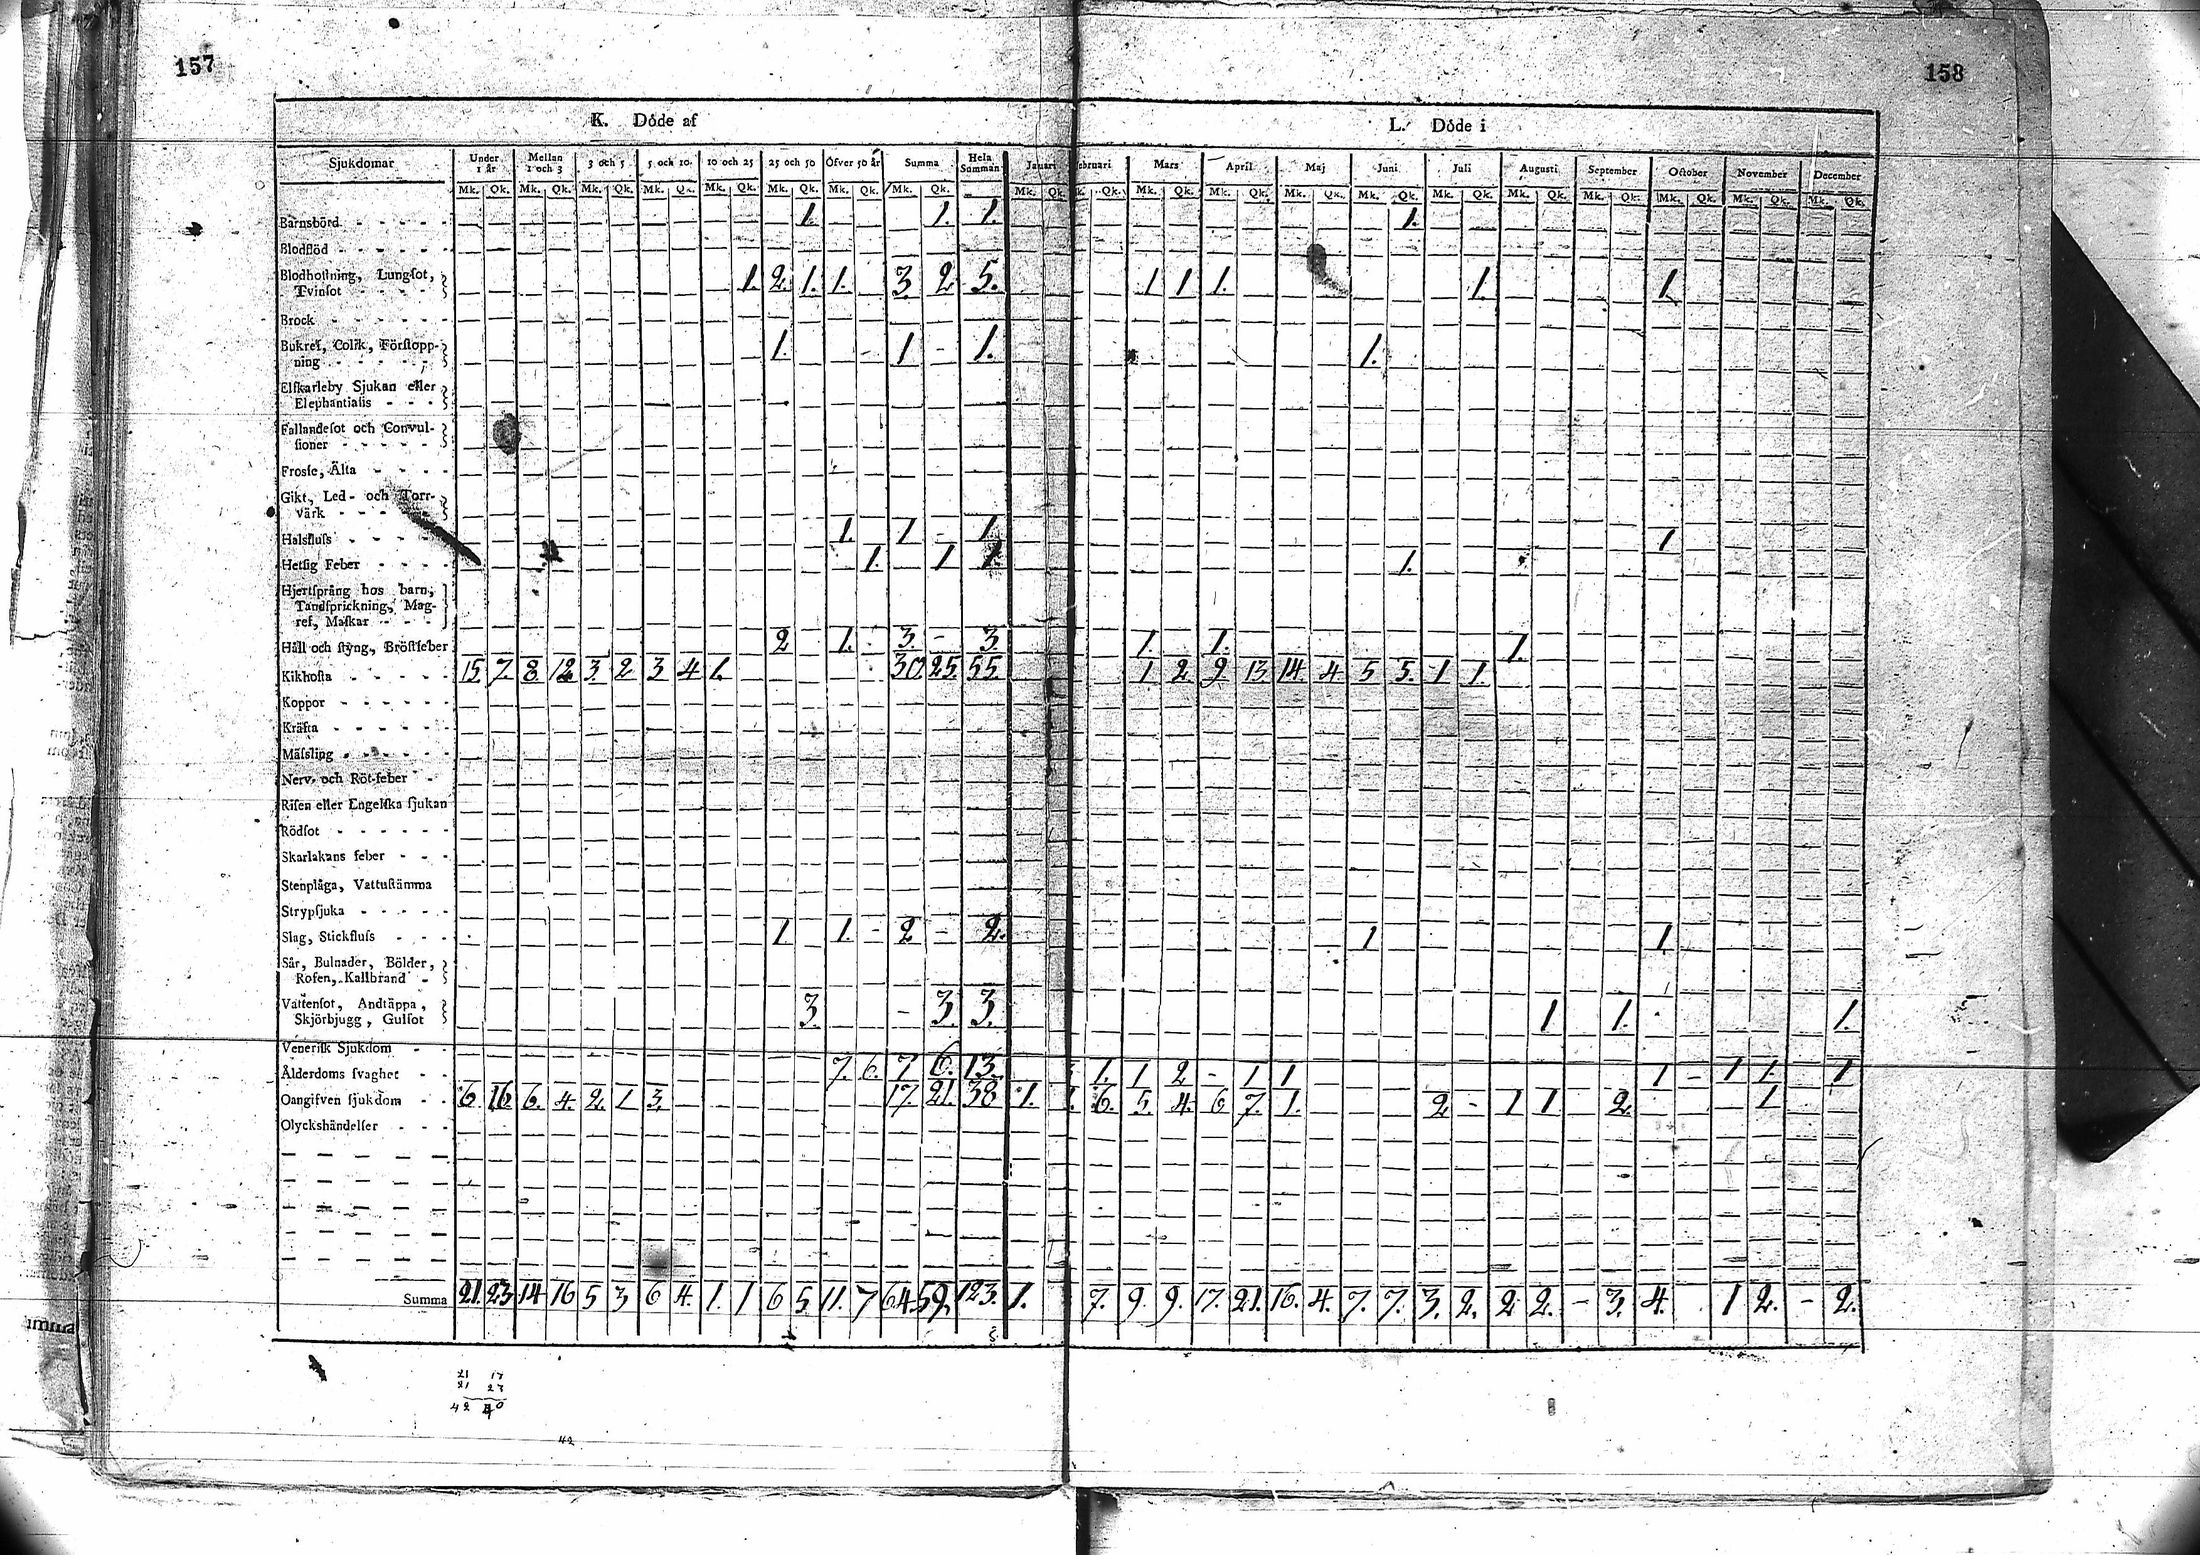 157
158
K. Döde af
L. Döde i
Sjukdomar Under 1 år Mellan 1 och 3 3 och 5 5 och 10 10 och 25 25 och 50 Öfver 50 år Summa Hela Summan Januari ebruari Mars April Maj Juni Juli Augusti September October November December
Mk. Qk. Mk. Qk. Mk. Qk. Mk. Qk. Mk. Qk. Mk. Qk. Mk. Qk. Mk. Qk. Mk. Qk. Qk. Mk. Qk. Mk. Qk. Mk. Qk. Mk. Qk. Mk. Qk. Mk. Qk. Mk. Qk. Mk. Qk. Mk. Qk. Mk. Qk.
Barnsbörd 1. 1. 1. 1.
Blodflöd
Blodhostning, Lungsot,
Tvinsot 1. 2. 1. 1. 3. 2 5. 1 1 1. 1. 1
Brock
Bukref, Colik, Förstopp-
ning 1. 1 - 1. 1.
Elfkarleby Sjukan eller
Elephantiasis
Fallandesot och Convul-
sioner
Frossa, Älta
Gikt, Led- och Torr-
värk
Halsfluss 1. 1 - 1. 1
Hetsig Feber 1. 1 1. 1.
Hjertsprång hos barn,
Tandsprickning, Mag-
ref, Maskar
Håll och styng, Bröstfeber 2 1. - 3. - 3. 1. 1. 1.
Kikhosta 15 7. 8. 12 3. 2 3 4 1. 30. 25. 55. 1 2 9. 13 14. 4 5 5. 1 1.
Koppor
Kräfta
Mässling
Nerv- och Röt-feber
Risen eller Engelska sjukan
Rödsot
Skarlakans feber
Stenplåga, Vattustämma
Strypsjuka
Slag, Stickfluss 1 1. - 2 - 2. 1 1
Sår, Bulnader, Bölder,
Rosen, Kallbrand
Vattensot, Andtäppa,
Skjörbjugg, Gulsot 3. - 3. 3. 1 1. 1.
Venerisk Sjukdom
Ålderdoms svaghet 7. 6. 7 6. 13. 1. 1 2 - 1 1 1 - 1 1. 1
Oangifven sjukdom 6. 16 6. 4. 2. 1 3. 17. 21. 38 1. 6. 5. 4. 6 7. 1. 2 - 1 1 2. 1
Olyckshändelser
Summa 21. 23 14 16 5 3 6 4. 1. 1 6 5. 11. 7 64. 59. 123. 1. 7. 9. 9. 17. 21. 16. 4. 7. 7. 3. 2. 2 2. - 3. 4. 1 2. - 2.
21 17
21 23
42 40
42